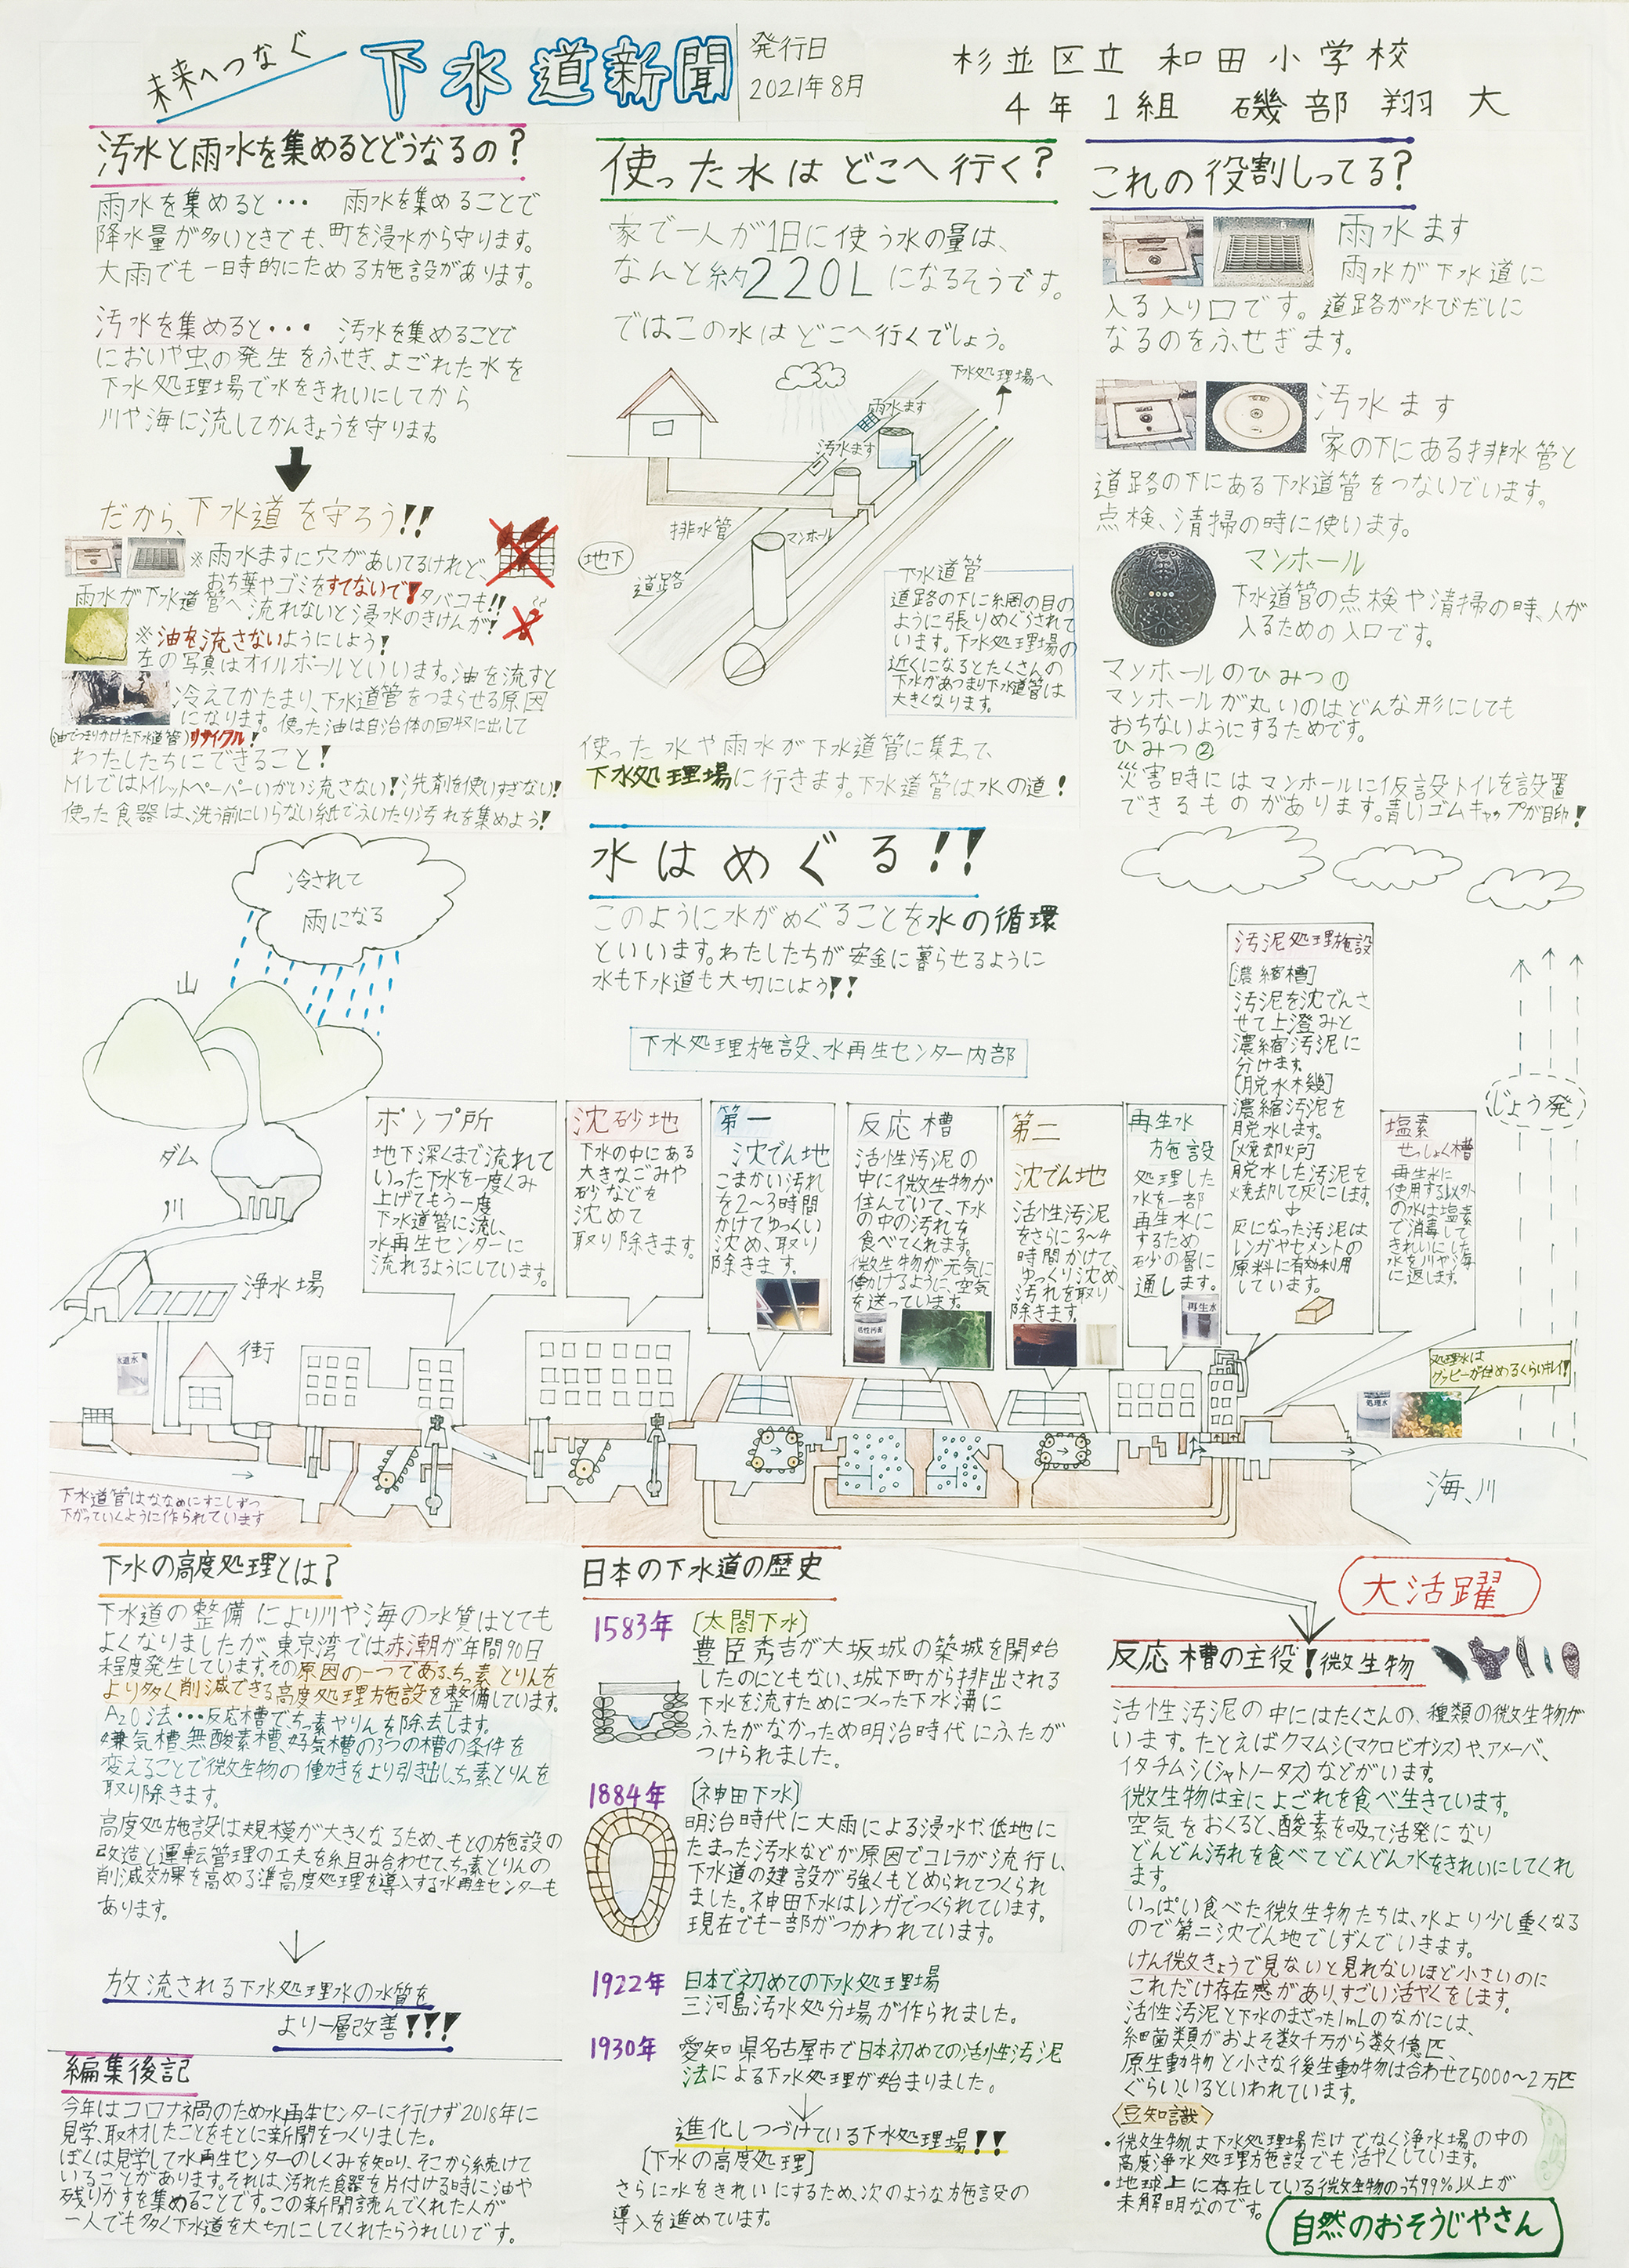 未来へつなぐ
下水道新聞
発行日
2021年8月
杉並区立 和田小学校
4年1組 磯部 翔大
汚水と雨水を集めるとどうなるの？
雨水を集めると・・・ 雨水を集めることで
降水量が多いときでも、町を浸水から守ります。
大雨でも一時的にためる施設があります。
汚水を集めると・・・ 汚水を集めることで
においや虫の発生をふせぎ、よごれた水を
下水処理場で水をきれいにしてから
川や海に流してかんきょうを守ります。
だから、下水道を守ろう!!
※雨水ますに穴があいてるけれど
おち葉やゴミをすてないで!タバコも!!
雨水が下水道管へ流れないと浸水のきけんが!
※油を流さないようにしよう!
左の写真はオイルボールといいます。油を流すと
冷えてかたまり、下水道管をつまらせる原因
になります。使った油は自治体の回収に出して
(油でつまりかけた下水道管)リサイクル!
わたしたちにできること!
トイレではトイレットペーパーいがい流さない!洗剤を使いすぎない!
使った食器は、洗う前にいらない紙でふいたり汚れを集めよう!
使った水はどこへ行く？
家で一人が1日に使う水の量は、
なんと約220Lになるそうです。
ではこの水はどこへ行くでしょう。
下水処理場へ
雨水ます
汚水ます
排水管
マンホール
地下
道路
下水道管
道路の下に網の目の
ように張りめぐらされて
います。下水処理場の
近くになるとたくさんの
下水があつまり下水道管は
大きくなります。
使った水や雨水が下水道管に集まって、
下水処理場に行きます。下水道管は水の道!
これの役割しってる？
雨水ます
雨水が下水道に
入る入り口です。道路が水びだしに
なるのをふせぎます。
汚水ます
家の下にある排水管と
道路の下にある下水道管をつないでいます。
点検、清掃の時に使います。
マンホール
下水道管の点検や清掃の時、人が
入るための入口です。
マンホールのひみつ①
マンホールが丸いのはどんな形にしても
おちないようにするためです。
ひみつ②
災害時にはマンホールに仮設トイレを設置
できるものがあります。青いゴムキャップが目印!
水はめぐる!!
このように水がめぐることを水の循環
といいます。わたしたちが安全に暮らせるように
水も下水道も大切にしよう!!
下水処理施設、水再生センター内部
冷されて
雨になる
山
ダム
川
浄水場
街
水道水
ポンプ所
地下深くまで流れて
いった下水を一度くみ
上げてもう一度
下水道管に流し、
水再生センターに
流れるようにしています。
沈砂地
下水の中にある
大きなごみや
砂などを
沈めて
取り除きます。
第一
沈でん地
こまかい汚れ
を2～3時間
かけてゆっくり
沈め、取り
除きます。
反応槽
活性汚泥の
中に微生物が
住んでいて、下水
の中の汚れを
食べてくれます。
微生物が元気に
働けるように、空気
を送っています。
活性汚泥
第二
沈でん地
活性汚泥
をさらに3～4
時間かけて、
ゆっくり沈め、
汚れを取り
除きます。
再生水
施設
処理した
水を一部
再生水に
するため
砂の層に
通します。
再生水
汚泥処理施設
[濃縮槽]
汚泥を沈でんさ
せて上澄みと
濃縮汚泥に
分けます。
[脱水機]
濃縮汚泥を
脱水します。
[焼却炉]
脱水した汚泥を
焼却して灰にします。
灰になった汚泥は
レンガやセメントの
原料に有効利用
しています。
塩素
せっしょく槽
再生水に
使用する以外
の水は塩素
で消毒して
きれいにした
水を川や海
に返します。
じょう発
処理水は
グッピーが住めるくらいキレイ!
処理水
海、川
下水道管はななめにすこしずつ
下がっていくように作られています
下水の高度処理とは？
下水道の整備により川や海の水質はとても
よくなりましたが、東京湾では赤潮が年間90日
程度発生しています。その原因の一つであるちっ素とりんを
より多く削減できる高度処理施設を整備しています。
A2O法・・・反応槽で、ちっ素やりんを除去します。
嫌気槽、無酸素槽、好気槽の3つの槽の条件を
変えることで微生物の働きをより引き出し、ちっ素とりんを
取り除きます。
高度処施設は規模が大きくなるため、もとの施設の
改造と運転管理の工夫を組み合わせて、ちっ素とりんの
削減効果を高める準高度処理を導入する水再生センターも
あります。
放流される下水処理水の水質を
より一層改善!!!
編集後記
今年はコロナ禍のため水再生センターに行けず2018年に
見学、取材したことをもとに新聞をつくりました。
ぼくは見学して水再生センターのしくみを知り、そこから続けて
いることがあります。それは、汚れた食器を片付ける時に油や
残りかすを集めることです。この新聞読んでくれた人が
一人でも多く下水道を大切にしてくれたらうれしいです。
日本の下水道の歴史
1583年 [太閤下水]
豊臣秀吉が大坂城の築城を開始
したのにともない、城下町から排出される
下水を流すためにつくった下水溝に
ふたがなかっため明治時代にふたが
つけられました。
1884年 [神田下水]
明治時代に大雨による浸水や低地に
たまった汚水などが原因でコレラが流行し、
下水道の建設が強くもとめられてつくられ
ました。神田下水はレンガでつくられています。
現在でも一部がつかわれています。
1922年 日本で初めての下水処理場
三河島汚水処分場が作られました。
1930年 愛知県名古屋市で日本初めての活性汚泥
法による下水処理が始まりました。
進化しつづけている下水処理場!!
[下水の高度処理]
さらに水をきれいにするため、次のような施設の
導入を進めています。
大活躍
反応槽の主役!微生物
活性汚泥の中にはたくさんの、種類の微生物が
います。たとえばクマムシ(マクロビオシス)や、アメーバ、
イタチムシ(シャトノータス)などがいます。
微生物は主によごれを食べ生きています。
空気をおくると、酸素を吸って活発になり
どんどん汚れを食べてどんどん水をきれいにしてくれ
ます。
いっぱい食べた微生物たちは、水より少し重くなる
ので第二沈でん地でしずんでいきます。
けん微きょうで見ないと見れないほど小さいのに
これだけ存在感があり、すごい活やくをします。
活性汚泥と下水のまざった1mLのなかには、
細菌類がおよそ数千万から数億匹、
原生動物と小さな後生動物は合わせて5000～2万匹
ぐらいいるといわれています。
豆知識
・微生物は下水処理場だけでなく浄水場の中の
高度浄水処理施設でも活やくしています。
・地球上に存在している微生物のうち99%以上が
未解明なのです。
自然のおそうじやさん